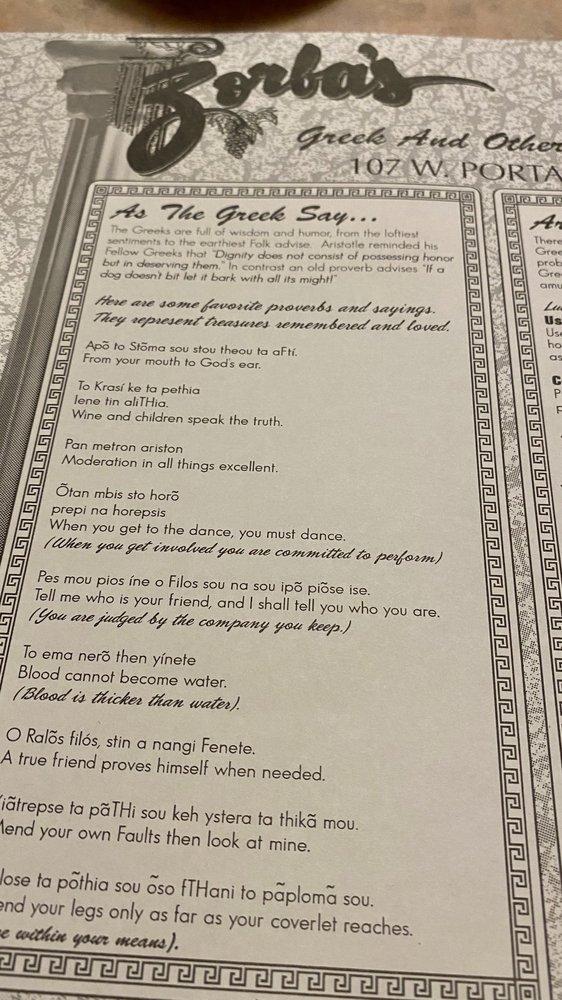 Zorba's
Greek And Other
107 W. PORTA
As The Greek Say...
The Greeks are full of wisdom and humor, from the loftiest
sentiments to the earthiest Folk advise. Aristotle reminded his
Fellow Greeks that "Dignity does not consist of possessing honor
but in deserving them." In contrast an old proverb advises "If a
dog doesn't bit let it bark with all its might!"
Here are some favorite proverbs and sayings.
They represent treasures remembered and loved.
Apõ to Stõma sou stou theou ta aFtí.
From your mouth to God's ear.
To Krasí ke ta pethia
Iene tin aliTHia.
Wine and children speak the truth.
Pan metron ariston
Moderation in all things excellent.
Õtan mbis sto horõ
prepi na horepsis
When you get to the dance, you must dance.
(When you get involved you are committed to perform)
Pes mou pios íne o Filos sou na sou ipõ piõse ise.
Tell me who is your friend, and I shall tell you who you are.
(You are judged by the company you keep.)
To ema nerõ then yínete
Blood cannot become water.
(Blood is thicker than water).
O Ralõs filós, stin a nangi Fenete.
A true friend proves himself when needed.
iãtrepse ta pãTHi sou keh ystera ta thikã mou.
Mend your own Faults then look at mine.
lose ta põthia sou õso fTHani to pãplomã sou.
end your legs only as far as your coverlet reaches.
e within your means).
Ar
There
Gree
prob
Gre
amu
Lu
Us
Use
ho
as
C
P